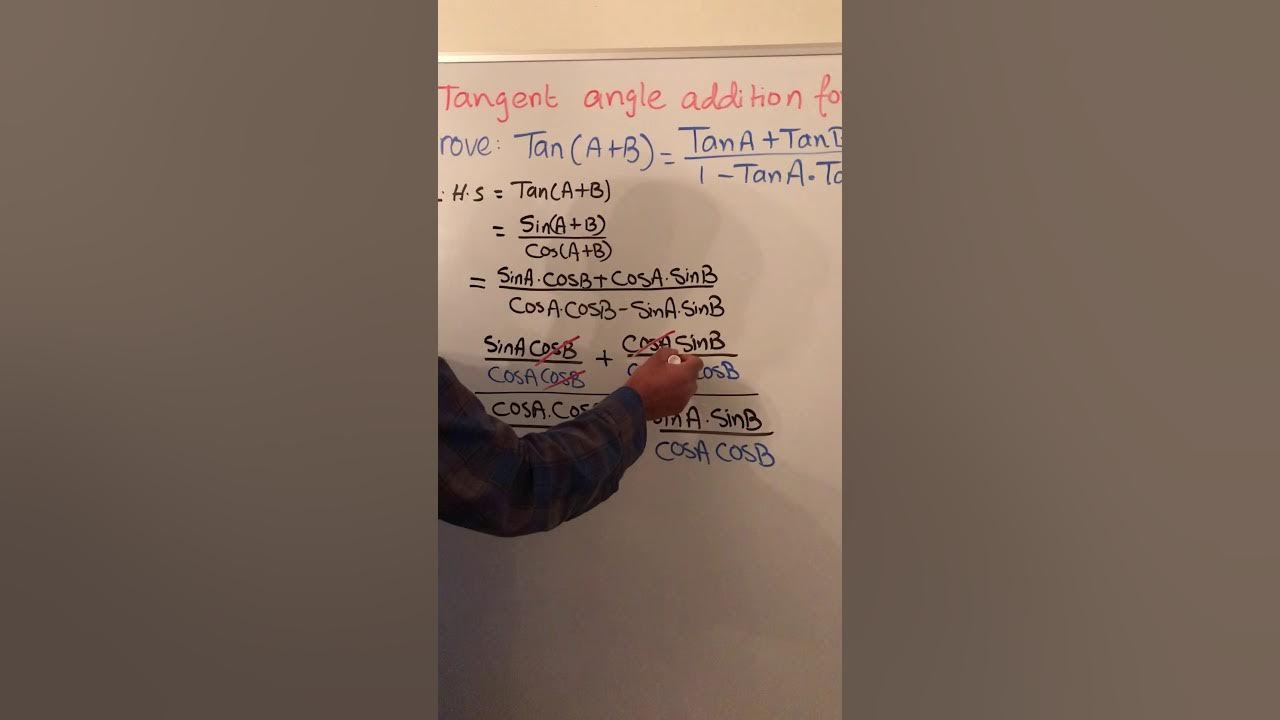 Tangent angle addition
Tan(A+B) = TanA + Tan
1 - TanA.
H.S = Tan(A+B)
= Sin(A+B)
Cos(A+B)
= SinA.CosB + CosA.SinB
CosA.CosB - SinA.SinB
SinA CosB + CosA SinB
CosA CosB
CosA. A.SinB
CosA CosB